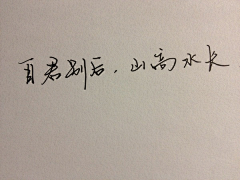 自君别后，山高水长